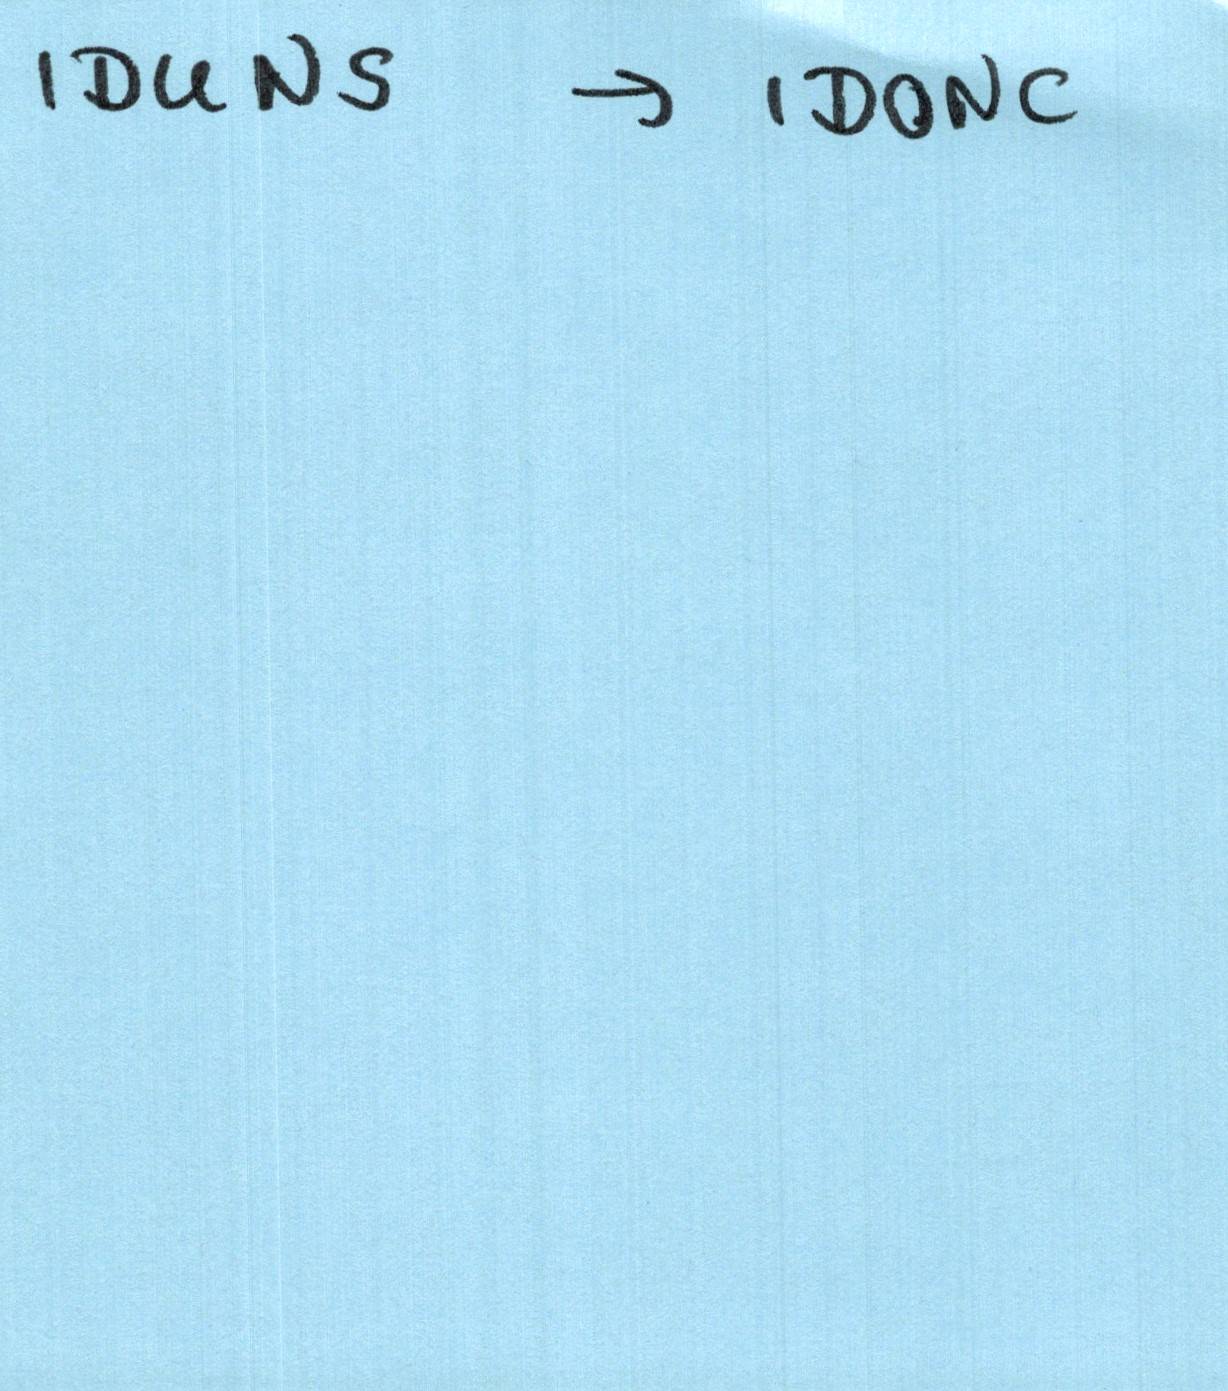 IDUNS → IDONC